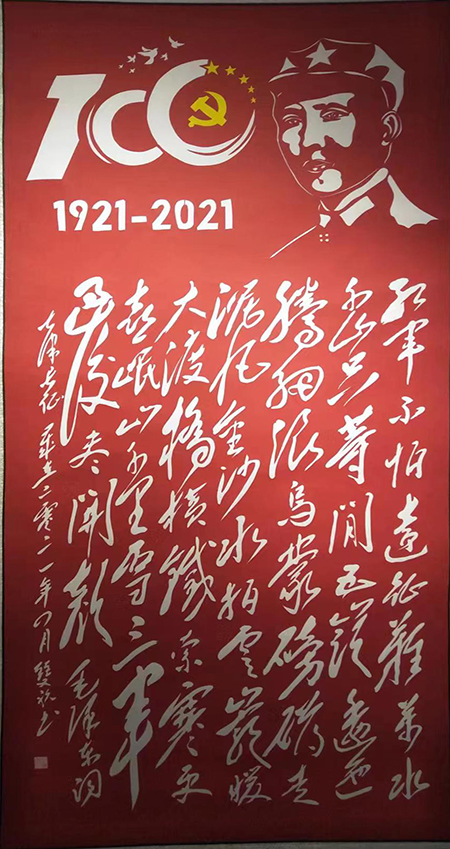 100
1921-2021
红军不怕遠征難萬水
千山只等闲五嶺逶迤
腾细浪乌蒙磅礴走
泥丸金沙水拍雲崖暖
大渡橋横鐵索寒更
喜岷山千里雪三军
过后尽開颜 毛泽东词
七律长征 二零二一年四月 书